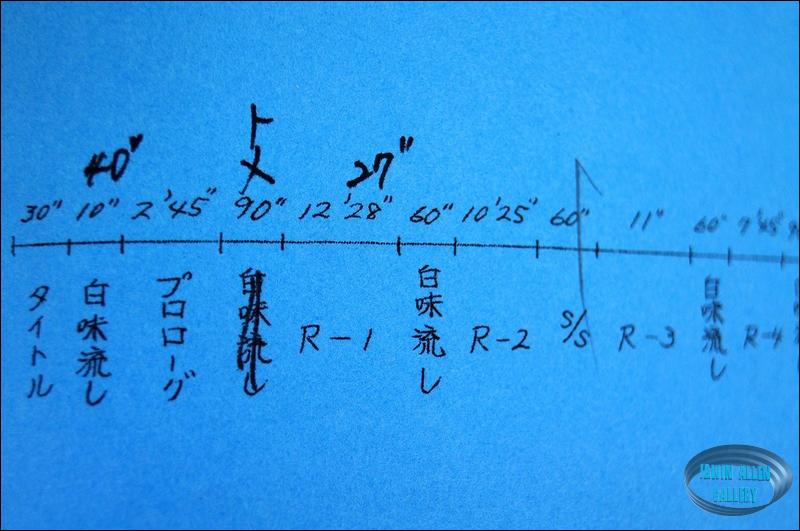 40" トメ 27"
30" 10" 2'45" 90" 12'28" 60" 10'25" 60" 11" 60" 7'45"
タイトル
白味流し
プロローグ
白味流し
R-1
白味流し
R-2
S/S
R-3
白味流し
R-4
IRWIN ALLEN
GALLERY